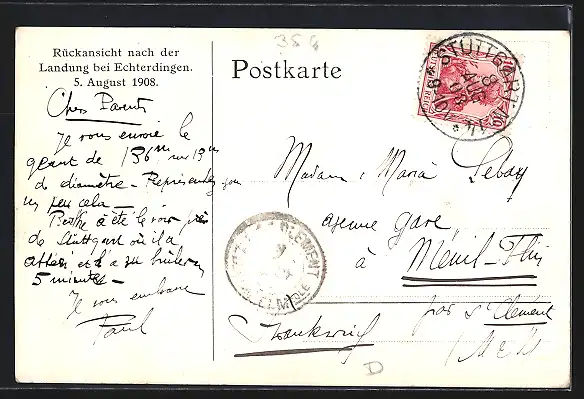 356
Rückansicht nach der
Landung bei Echterdingen.
5. August 1908.
Postkarte
STUTTGART
8 AUG 08
Chers Parents
Je vous envoie le
géant de 136m sur 13m
de diamètre - Représentez vous
un peu cela -
été le voir près
de Stuttgart où il a
et l'a vu brûler en
5 minutes -
Je vous embrasse
Paul
Madame Maria Lebay
avenue Gare
à Menil-Flin
par St Clément
(M et M)
Frankreich
CLEMENT
D